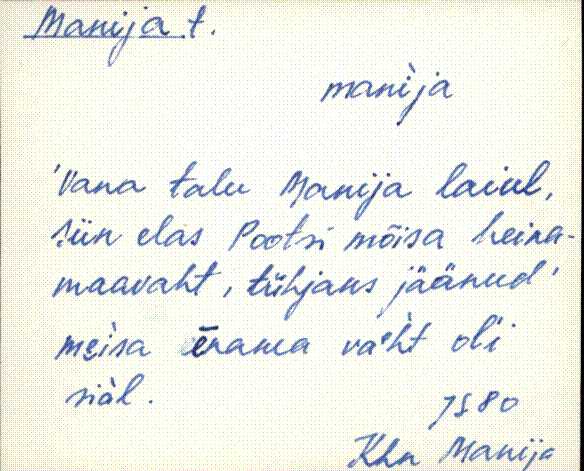 Manija t.
manìja
'Vana talu Manija laiul,
siin elas Pootsi mõisa heina-
maavaht, tühjaks jäänud'
meìsa ēnama va'ht ol'i
siàl.
1980
Khn Manija